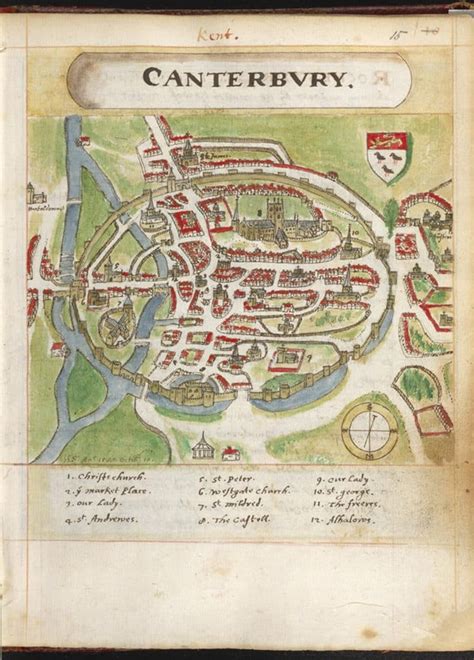 Kent.
15
CANTERBVRY.
St James
1. Christs church.
2. ye market place.
3. our Lady.
4. St. Andrewes.
5. St. Peter.
6. Westgate Church.
7. St. mildred.
8. The Castell.
9. Our Lady.
10. St. george.
11. The freers.
12. Alhalows.